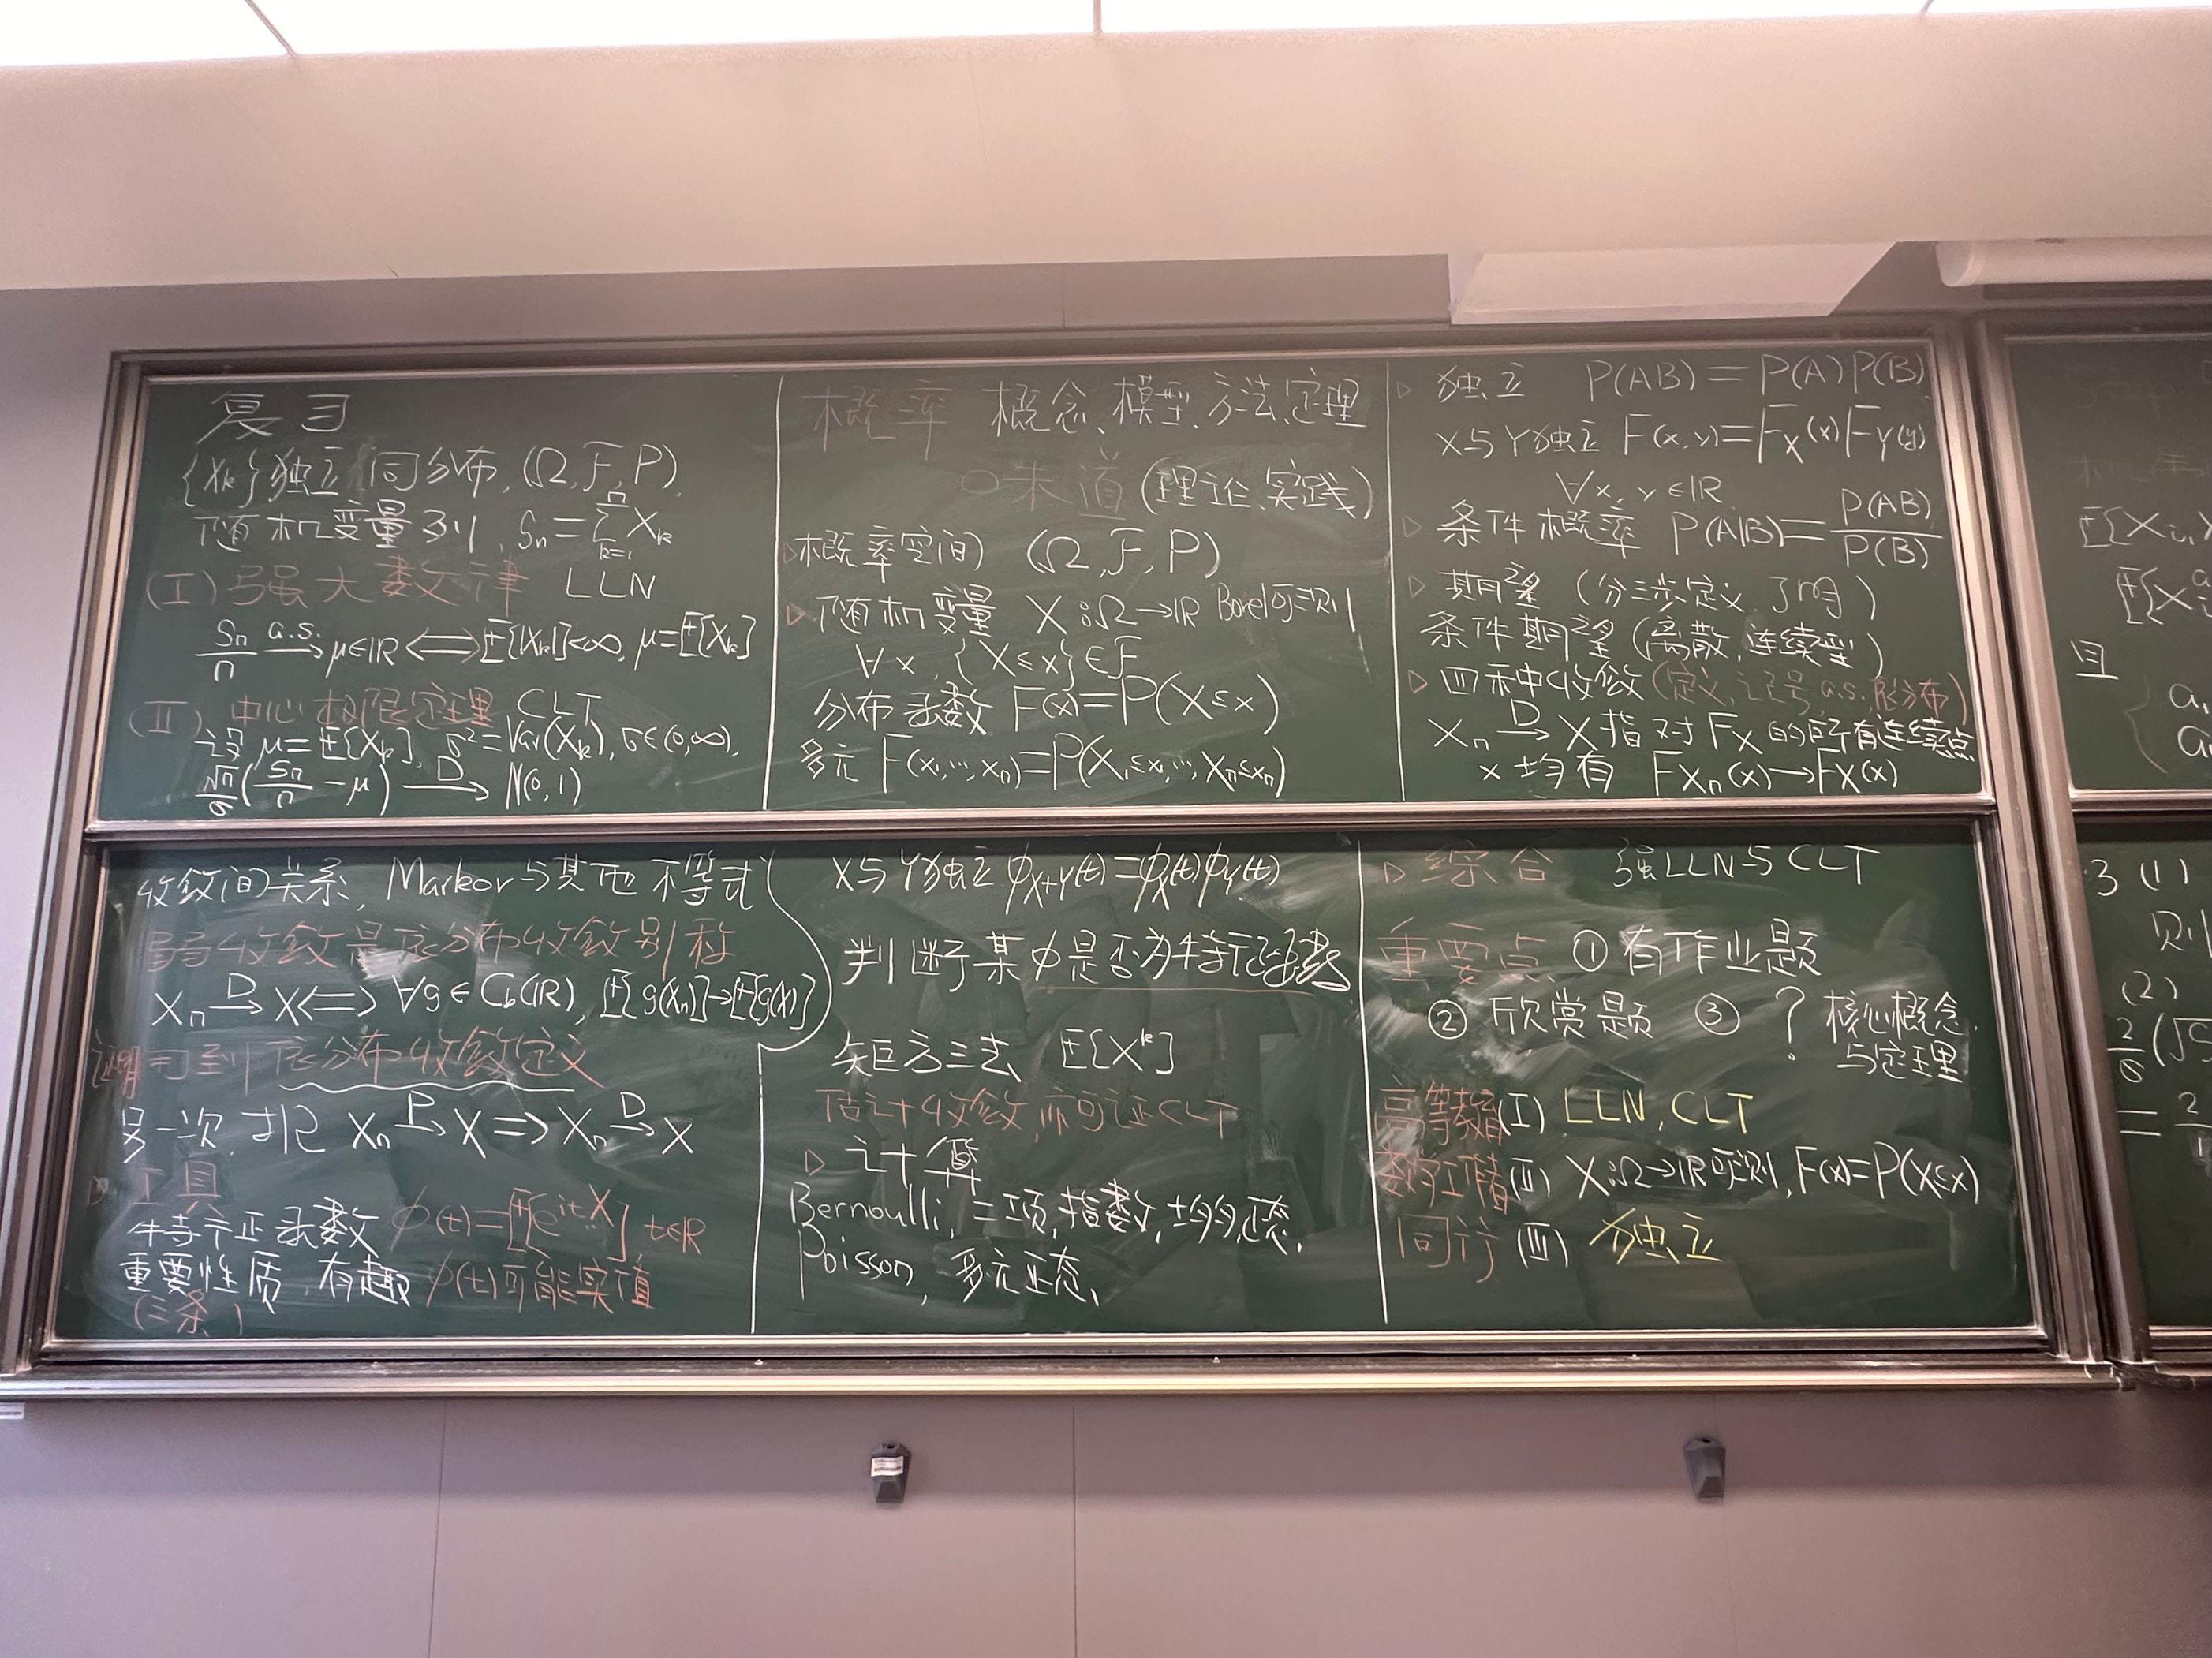 复习
{Xk}独立同分布, (Ω, F, P),
随机变量列, Sn = ∑_{k=1}^{n} Xk
(I) 强大数律 LLN
Sn/n —a.s.→ μ∈ℝ ⟺ E[|Xk|]<∞, μ=E[Xk]
(II) 中心极限定理 CLT
设 μ=E[Xk], σ²=Var(Xk), σ∈(0,∞),
√n/σ (Sn/n − μ) —D→ N(0,1)
概率 概念、模型、方法、定理
味道 (理论、实践)
▷概率空间 (Ω, F, P)
▷随机变量 X:Ω→ℝ Borel可测
∀x, {X≤x}∈F
分布函数 F(x)=P(X≤x)
多元 F(x1,…,xn)=P(X1≤x1,…,Xn≤xn)
▷ 独立 P(AB)=P(A)P(B)
X与Y独立 F(x,y)=FX(x)FY(y)
∀x, y∈ℝ
▷ 条件概率 P(A|B)=P(AB)/P(B)
▷ 期望 (分三步定义, )
条件期望 (离散, 连续型)
▷ 四种收敛 (定义, 记号, a.s., 依分布)
Xn —D→ X 指对 FX 的所有连续点
x 均有 FXn(x)→FX(x)
收敛间关系, Markov与其他不等式
弱收敛是依分布收敛别称
Xn —D→ X ⟺ ∀g∈Cb(ℝ), E[g(Xn)]→E[g(X)]
证明 回到 依分布收敛定义
另一次, 把 Xn —P→ X ⟹ Xn —D→ X
▷ 工具
特征函数 φ(t)=E[e^{itX}] t∈ℝ
重要性质, 有趣 φ(t)可能实值
(三条)
X与Y独立 φX+Y(t)=φX(t)φY(t)
判断某φ是否为特征函数
矩方法 E[X^k]
估计收敛, 亦可证CLT
▷ 计算
Bernoulli, 二项, 指数, 均匀, 正态,
Poisson, 多元正态,
▷ 综合 强LLN与CLT
重要点 ① 有作业题
② 欣赏题 ③ ? 核心概念
与定理
(I) LLN, CLT
(II) X:Ω→ℝ可测, F(x)=P(X≤x)
同行 (III) 独立
且
3 (1)
则
(2)